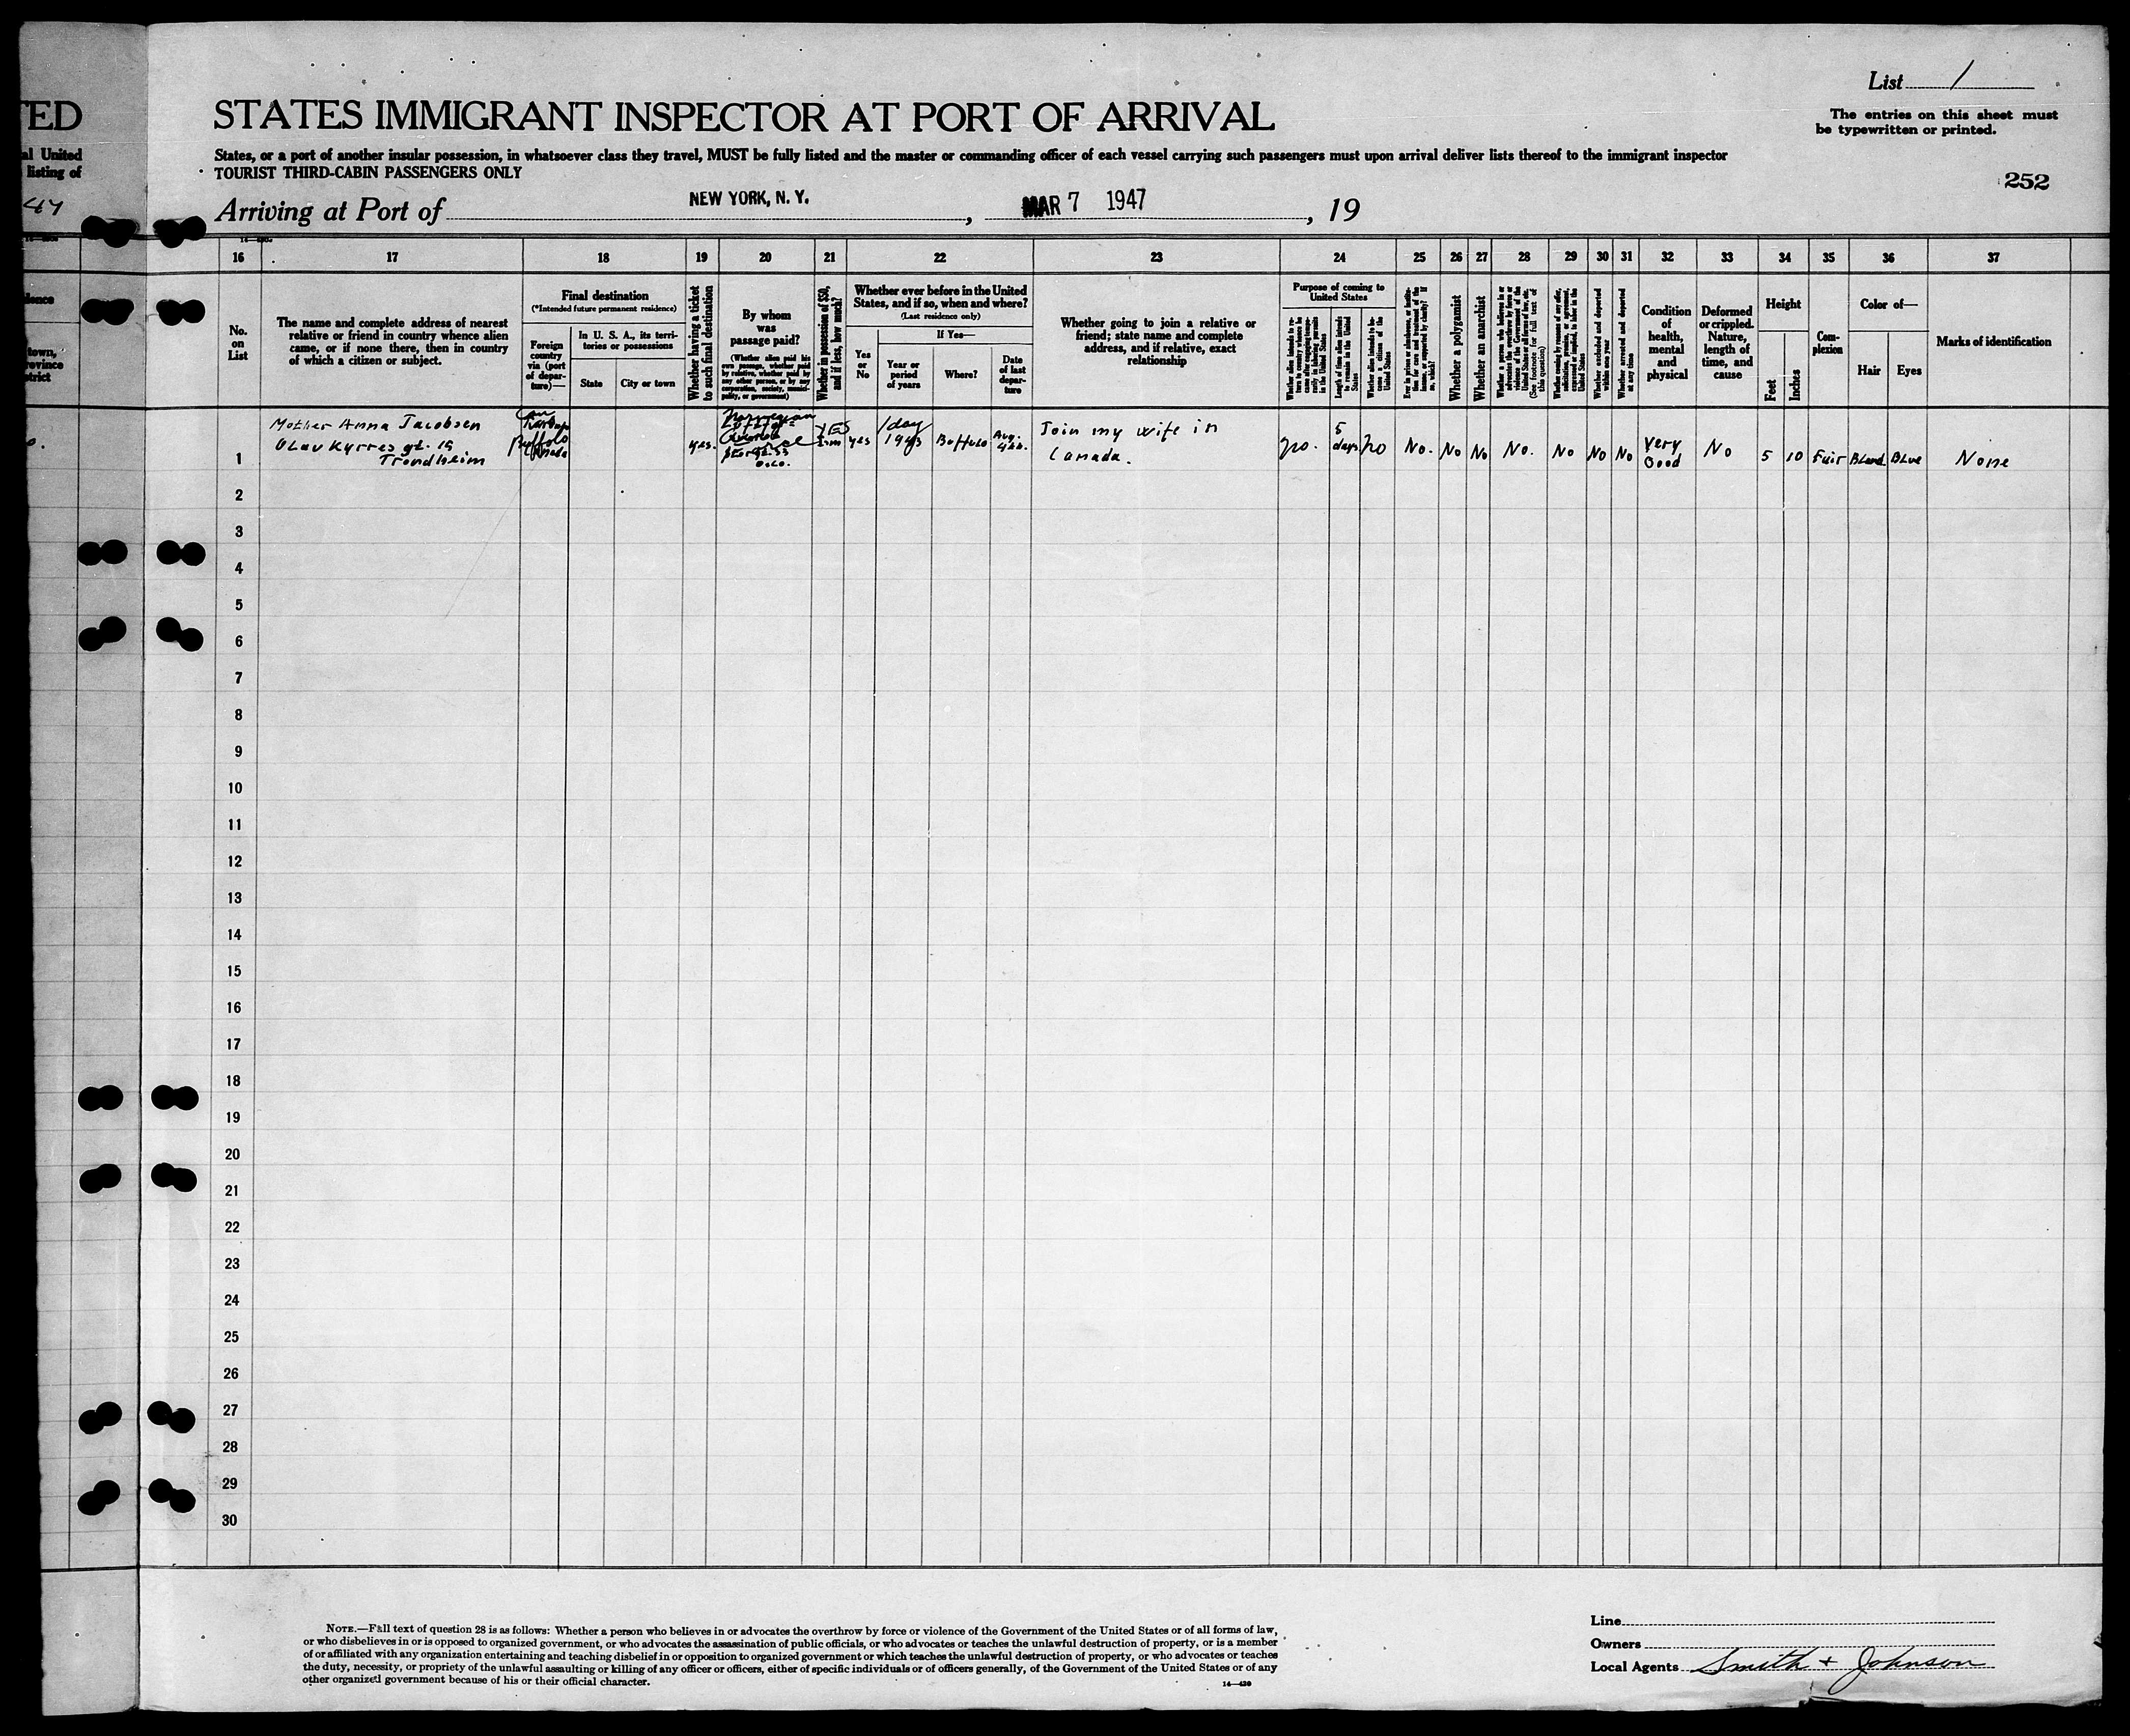 TED
STATES IMMIGRANT INSPECTOR AT PORT OF ARRIVAL
List 1
The entries on this sheet must
be typewritten or printed.
al United
listing of
47
States, or a port of another insular possession, in whatsoever class they travel, MUST be fully listed and the master or commanding officer of each vessel carrying such passengers must upon arrival deliver lists thereof to the immigrant inspector
TOURIST THIRD-CABIN PASSENGERS ONLY
252
Arriving at Port of NEW YORK, N. Y., MAR 7 1947, 19
16 17 18 19 20 21 22 23 24 25 26 27 28 29 30 31 32 33 34 35 36 37
No.
on
List
The name and complete address of nearest
relative or friend in country whence alien
came, or if none there, then in country
of which a citizen or subject.
Final destination
(*Intended future permanent residence)
Foreign
country
via (port
of depar-
ture)—
In U. S. A., its terri-
tories or possessions
State
City or town
Whether having a ticket
to such final destination
By whom
was
passage paid?
(Whether alien paid his
own passage, whether paid
by relative, whether paid by
any other person, or by any
corporation, society, munici-
pality, or government)
Whether in possession of $50,
and if less, how much?
Whether ever before in the United
States, and if so, when and where?
(Last residence only)
Yes
or
No
If Yes—
Year or
period
of years
Where?
Date
of last
depar-
ture
Whether going to join a relative or
friend; state name and complete
address, and if relative, exact
relationship
Purpose of coming to
United States
Whether alien intends to re-
turn to country whence he
came after engaging tempo-
rarily in laboring pursuits
in the United States
Length of time alien intends
to remain in the United
States
Whether alien intends to be-
come a citizen of the
United States
Ever in prison or almshouse, or institu-
tion for care and treatment of the
insane, or supported by charity? If
so, which?
Whether a polygamist
Whether an anarchist
Whether a person who believes in or
advocates the overthrow by force or
violence of the Government of the
United States or all forms of law, etc.
(See footnote for full text of
this question)
Whether coming by reason of any offer,
solicitation, promise, or agreement,
expressed or implied, to labor in the
United States
Whether excluded and deported
within one year
Whether arrested and deported
at any time
Condition
of
health,
mental
and
physical
Deformed
or crippled.
Nature,
length of
time, and
cause
Height
Feet
Inches
Com-
plexion
Color of—
Hair
Eyes
Marks of identification
town,
rovince
strict
1
Mother Anna Jacobsen
Olav Kyrres gt. 19
Trondheim
Buffalo
Canada
yes.
Norwegian
Oslo.
YES
yes
1 day
1943
Buffalo
Aug.
Join my wife in
Canada.
no.
5
days
no
No. No No No. No No No
Very
Good
No
5 10 Fair Blond Blue None
2
3
4
5
6
7
8
9
10
11
12
13
14
15
16
17
18
19
20
21
22
23
24
25
26
27
28
29
30
NOTE.—Full text of question 28 is as follows: Whether a person who believes in or advocates the overthrow by force or violence of the Government of the United States or of all forms of law,
or who disbelieves in or is opposed to organized government, or who advocates the assassination of public officials, or who advocates or teaches the unlawful destruction of property, or is a member
of or affiliated with any organization entertaining and teaching disbelief in or opposition to organized government or which teaches the unlawful destruction of property, or who advocates or teaches
the duty, necessity, or propriety of the unlawful assaulting or killing of any officer or officers, either of specific individuals or of officers generally, of the Government of the United States or of any
other organized government because of his or their official character.
14—420
Line
Owners
Local Agents Smith + Johnson